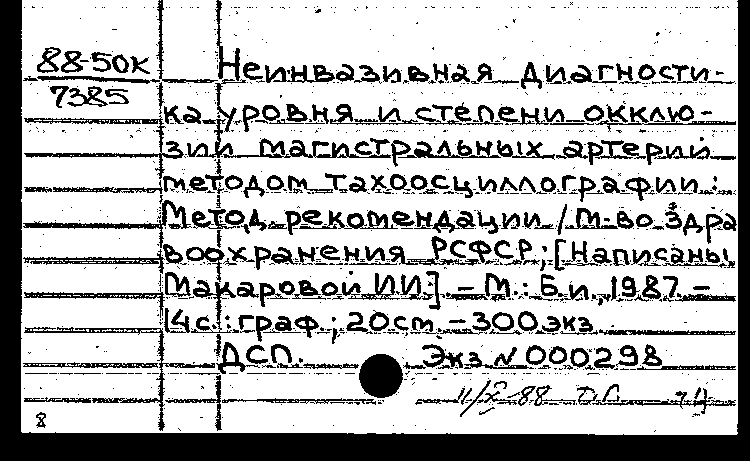 88-50к
7385
Неинвазивная диагности-
ка уровня и степени окклю-
зии магистральных артерий
методом тахоосциллографии :
Метод. рекомендации / М-во здра
воохранения РСФСР; [Написаны
Макаровой И.И.] - М.: Б.и., 1987. -
14 с. : граф ; 20 см. - 300 экз.
ДСП. Экз. № 000298
11/X-88
8